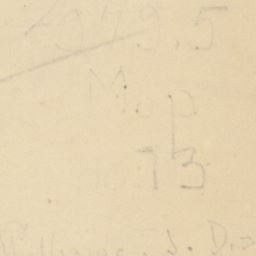 2979.5
Map
13
Williams, J. D